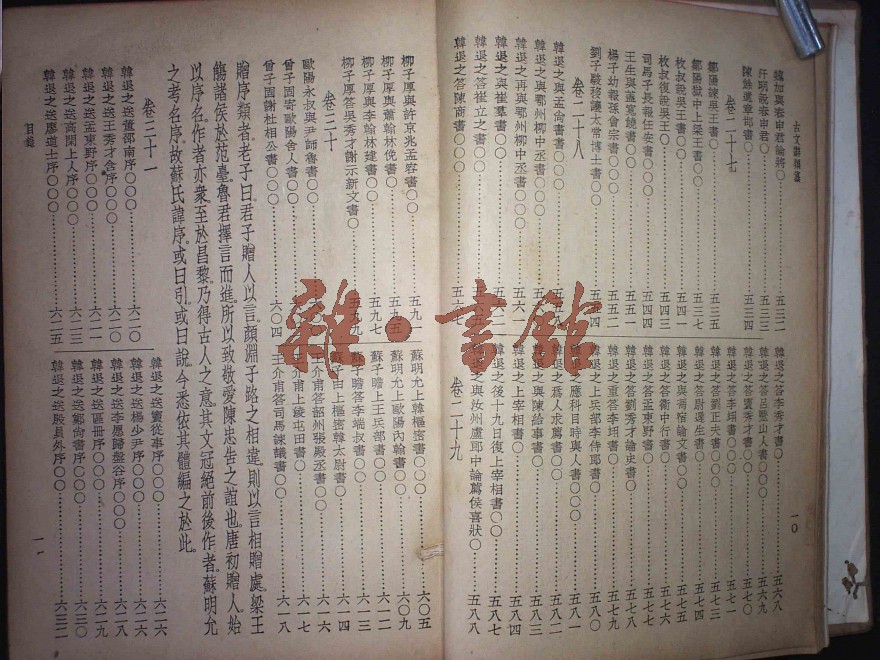 古文辭類纂
一〇
蘇加與春申君論將〇……五三二
汗明說春申君〇……五三三
陳餘遺章邯書〇……五三四
卷二十七
鄒陽諫吳王書〇……五三五
鄒陽獄中上梁王書〇……五三七
枚叔說吳王書〇……五四一
枚叔復說吳王〇……五四二
司馬子長報任安書〇〇〇……五四四
王生與蓋寬饒書〇……五五一
楊子幼報孫會宗書〇〇……五五二
劉子駿移讓太常博士書〇……五五四
卷二十八
韓退之與孟尚書書〇〇
韓退之與鄂州柳中丞書〇〇〇
韓退之再與鄂州柳中丞書〇〇〇
韓退之與崔羣書〇〇
韓退之答崔立之書〇〇
韓退之答陳商書〇〇……五六七
韓退之答李秀才書〇……五六八
韓退之答呂毉山人書〇〇……五六九
韓退之答竇秀才書〇……五七〇
韓退之答李翊書〇〇……五七一
韓退之答劉正夫書〇〇……五七三
韓退之答尉遲生書〇……五七四
韓退之與馮宿論文書〇……五七五
韓退之答衛中行書……五七六
韓退之答孟東野書〇……五七七
韓退之答劉秀才論史書〇……五七八
韓退之重答李翊書〇……五七九
韓退之上兵部李侍郎書〇……五八〇
韓退之應科目時與人書〇〇〇……五八一
韓退之爲人求薦書〇〇……五八二
韓退之與陳給事書〇……五八三
韓退之上宰相書〇……五八四
韓退之後十九日復上宰相書〇〇……五八七
韓退之與汝州盧郎中論薦侯喜狀〇……五八八
卷二十九
柳子厚與許京兆孟容書〇〇……五九一
柳子厚與蕭翰林俛書〇……五九五
柳子厚與李翰林建書〇……五九七
柳子厚答吳秀才謝示新文書〇……五九九
卷三十
歐陽永叔與尹師魯書〇〇
曾子固寄歐陽舍人書〇〇
曾子固謝杜相公書〇〇……六〇四
蘇明允上韓樞密書〇〇〇……六〇五
蘇明允上歐陽內翰書〇〇……六〇九
蘇子瞻上王兵部書〇……六一二
蘇子瞻答李端叔書〇……六一三
蘇子由上樞密韓太尉書〇〇……六一四
王介甫答韶州張殿丞書〇〇……六一六
王介甫上凌屯田書〇……六一七
王介甫答司馬諫議書〇〇……六一八
贈序類者。老子曰。君子贈人以言。顏淵子路之相違。則以言相贈處。梁王
觴諸侯於范臺。魯君擇言而進。所以致敬愛陳忠告之誼也。唐初贈人。始
以序名。作者亦衆。至於昌黎。乃得古人之意。其文冠絕前後作者。蘇明允
之考名序。故蘇氏諱序。或曰引。或曰說。今悉依其體編之於此。
卷三十一
韓退之送董邵南序〇〇〇……六二〇
韓退之送王秀才含序〇〇〇……六二一
韓退之送孟東野序〇〇……六二二
韓退之送高閑上人序〇〇〇……六二三
韓退之送廖道士序〇〇〇……六二五
韓退之送竇從事序〇〇……六二六
韓退之送楊少尹序〇〇〇……六二六
韓退之送李愿歸盤谷序〇〇〇……六二八
韓退之送區冊序〇〇……六二九
韓退之送鄭尚書序〇〇〇……六三〇
韓退之送殷員外序〇〇……六三二
目錄
一一
雜·書館